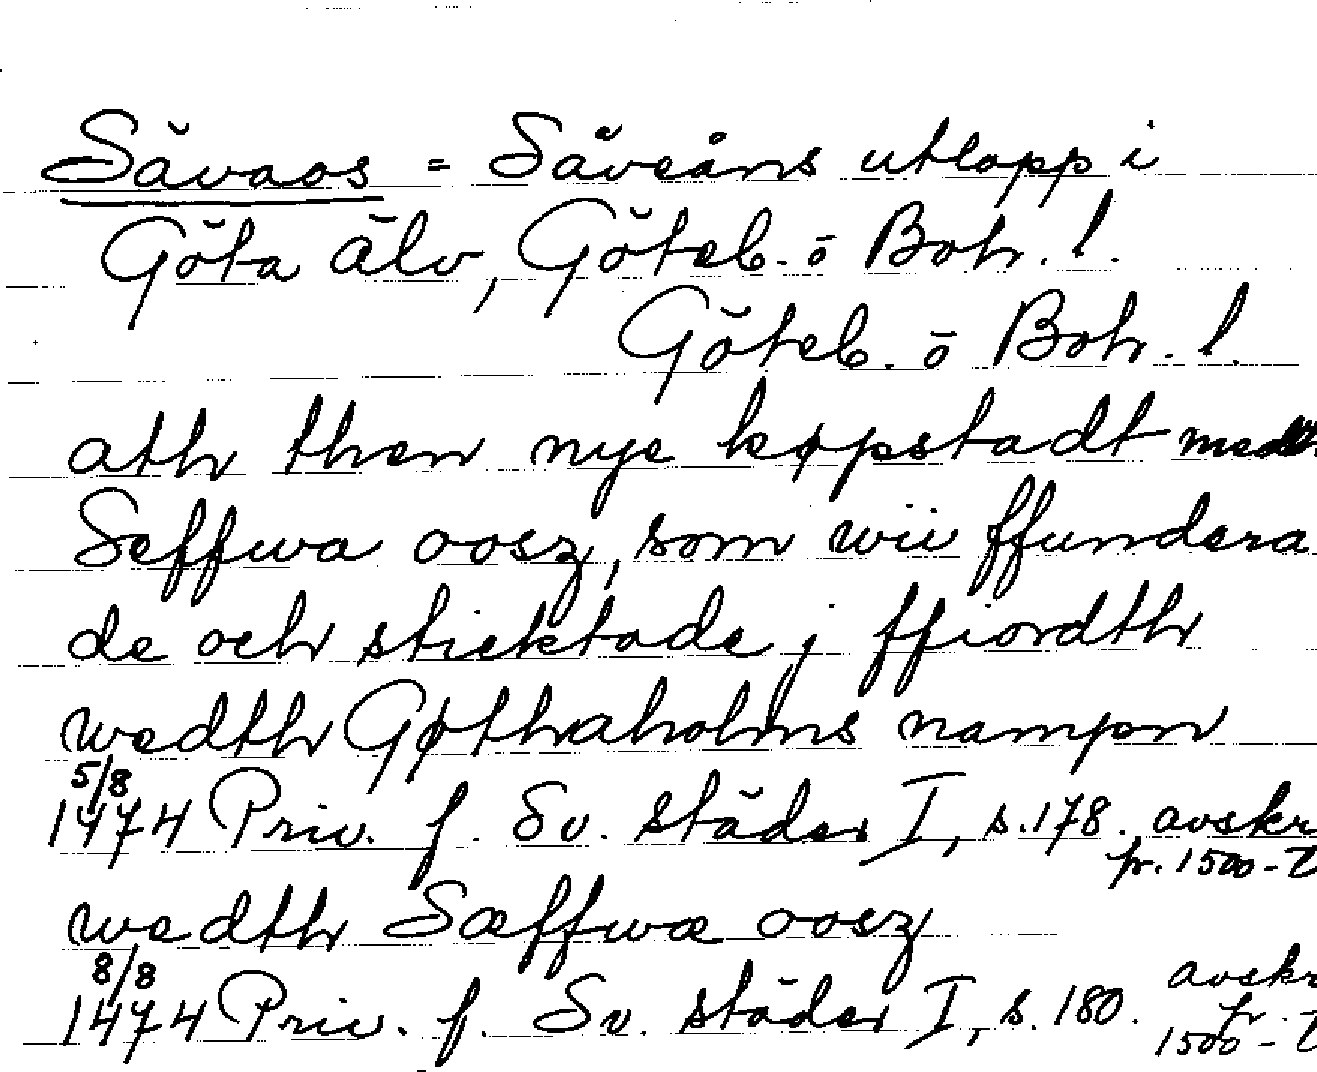 Sävaos = Säveåns utlopp i
Göta älv, Göteb. o Boh. l.
Göteb. o Boh. l.
ath then nye køpstadt medt
Seffwa oosz, som wii ffundera
de och stictade j ffiordth
wedth Gøthaholms nampn
5/8
1474 Priv. f. Sv. städer I, s. 178. avskr
fr. 1500-t
wedth Sæffwæ oosz
8/8
1474 Priv. f. Sv. städer I, s. 180. avskr
fr.
1500-t